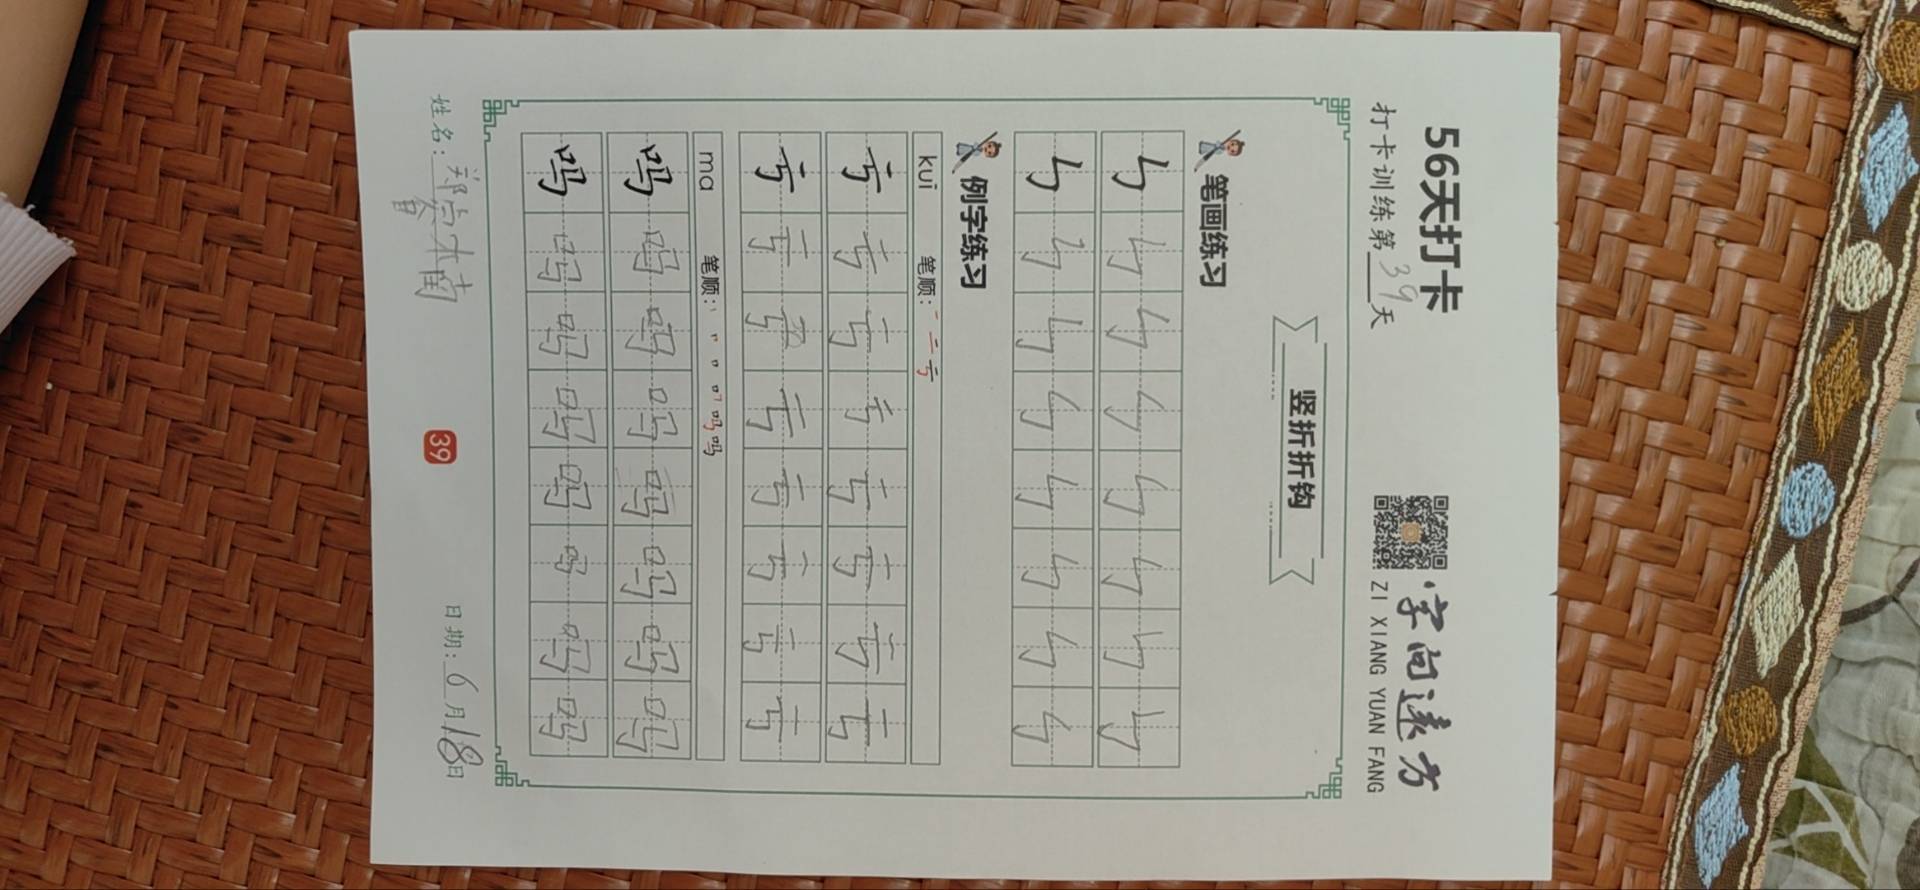 56天打卡
打卡训练第39天
字向远方
ZI XIANG YUAN FANG
竖折折钩
笔画练习
ㄣ ㄣ ㄣ ㄣ ㄣ ㄣ ㄣ ㄣ
ㄣ ㄣ ㄣ ㄣ ㄣ ㄣ ㄣ ㄣ
例字练习
kuī 笔顺: 一 二 亏
亏 亏 亏 亏 亏 亏 亏 亏
亏 亏 亏 亏 亏 亏 亏 亏
ma 笔顺: 丨 𠃍 口 叮 吗 吗
吗 吗 吗 吗 吗 吗 吗 吗
吗 吗 吗 吗 吗 吗 吗 吗
姓名: 郑
日期: 6月18日
39